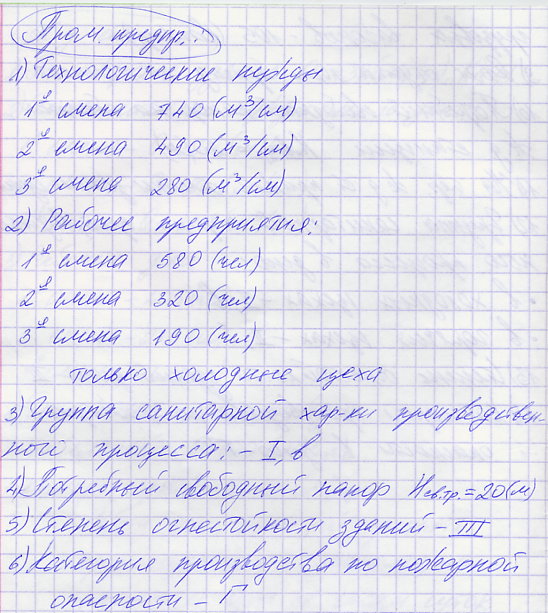 Пром. предпр.:
1) Технологические нужды
1ᵃя смена 740 (м³/см)
2ᵃя смена 490 (м³/см)
3ᵃя смена 280 (м³/см)
2) Рабочее предприятия:
1ᵃя смена 580 (чел)
2ᵃя смена 320 (чел)
3ᵃя смена 190 (чел)
только холодные цеха
3) Группа санитарной хар-ки производствен-
ной процесса: - I, в
4) Потребный свободный напор Hсв.тр. = 20 (м)
5) Степень огнестойкости зданий - III
6) Категория производства по пожарной
опасности - Г